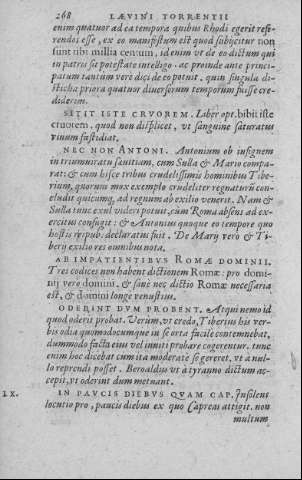 268 LAEVINI TORRENTII
enim quatuor ad ea tempora quibus Rhodi egerit refe-
rendos esse, ex eo manifestum est quod subijcitur non
sunt tibi millia centum, id enim ut de eo dictum qui
in patris sit potestate intelligo. ac proinde ante princi-
patum tantùm verè dici de eo potuit. quin singula di-
sticha priora quatuor diversorum temporum fuisse cre-
diderim.
SITIT ISTE CRVOREM. Liber opt. bibit iste
cruorem. quod non displicet, ut sanguine saturatus
vinum fastidiat.
NEC NON ANTONI. Antonium ob insignem
in triumviratu sævitiam, cum Sulla & Mario compa-
rat: & cum hisce tribus crudelissimis hominibus Tibe-
rium, quorum mox exemplo crudeliter regnaturū con-
cludit quicumq; ad regnum ab exilio venerit. Nam &
Sulla tunc exul videri potuit, cùm Roma absens ad ex-
ercitus confugit: & Antonius quoque eo tempore quo
hostis reipub. declaratus fuit. De Mary verò & Ti-
bery exilio res omnibus nota.
AB IMPATIENTIBVS ROMÆ DOMINII.
Tres codices non habent dictionem Romæ: pro domi-
nij verò domini. & sanè nec dictio Romæ necessaria
est, & domini longè venustius.
ODERINT DVM PROBENT. Atqui nemo id
quod oderit probat. Verùm, ut credo, Tiberius his ver-
bis odia quomodocumque in se orta facilè contemnebat,
dummodo facta eius vel inviti probare cogerentur. tunc
enim hoc dicebat cum ita moderatè se gereret, ut à nul-
lo reprendi posset. Beroaldus ut à tyranno dictum ac-
cepit, ut oderint dum metuant.
LX. IN PAVCIS DIEBVS QVAM CAP. Insolens
locutio pro, paucis diebus ex quo Capreas attigit. non
multum